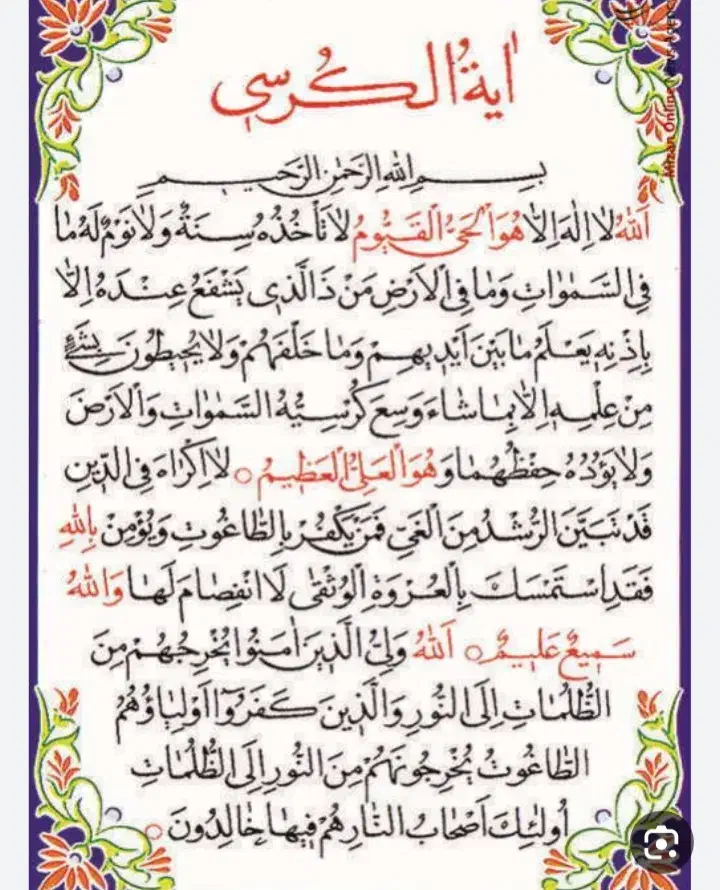 اٰيةُ الْكُرسي
بِسْمِ اللهِ الرَّحْمٰنِ الرَّحيمِ
اَللهُ لا اِلٰهَ اِلاّ هُوَ الْحَيُّ الْقَيُّومُ لا تَأْخُذُهُ سِنَةٌ وَلا نَوْمٌ لَهُ مَا
فِي السَّمٰوَاتِ وَمَا فِي الْاَرْضِ مَنْ ذَا الَّذي يَشْفَعُ عِنْدَهُ اِلاّ
بِاِذْنِهِ يَعْلَمُ مَا بَيْنَ اَيْديهِمْ وَمَا خَلْفَهُمْ وَلا يُحيطُونَ بِشَيْءٍ
مِنْ عِلْمِهِ اِلاّ بِمَا شَاءَ وَسِعَ كُرْسِيُّهُ السَّمٰوَاتِ وَالْاَرْضَ
وَلا يَؤُدُهُ حِفْظُهُمَا وَهُوَ الْعَلِيُّ الْعَظيمُ ○ لا اِكْرَاهَ فِي الدّينِ
قَدْ تَبَيَّنَ الرُّشْدُ مِنَ الْغَيِّ فَمَنْ يَكْفُرْ بِالطَّاغُوتِ وَيُؤْمِنْ بِاللهِ
فَقَدِ اسْتَمْسَكَ بِالْعُرْوَةِ الْوُثْقٰى لَا انْفِصَامَ لَهَا وَاللهُ
سَميعٌ عَليمٌ ○ اَللهُ وَلِيُّ الَّذينَ اٰمَنُوا يُخْرِجُهُمْ مِنَ
الظُّلُمَاتِ اِلَى النُّورِ وَالَّذينَ كَفَرُوا اَوْلِيَاؤُهُمُ
الطَّاغُوتُ يُخْرِجُونَهُمْ مِنَ النُّورِ اِلَى الظُّلُمَاتِ
اُولٰئِكَ اَصْحَابُ النَّارِ هُمْ فيهَا خَالِدُونَ ○
Mizan Online